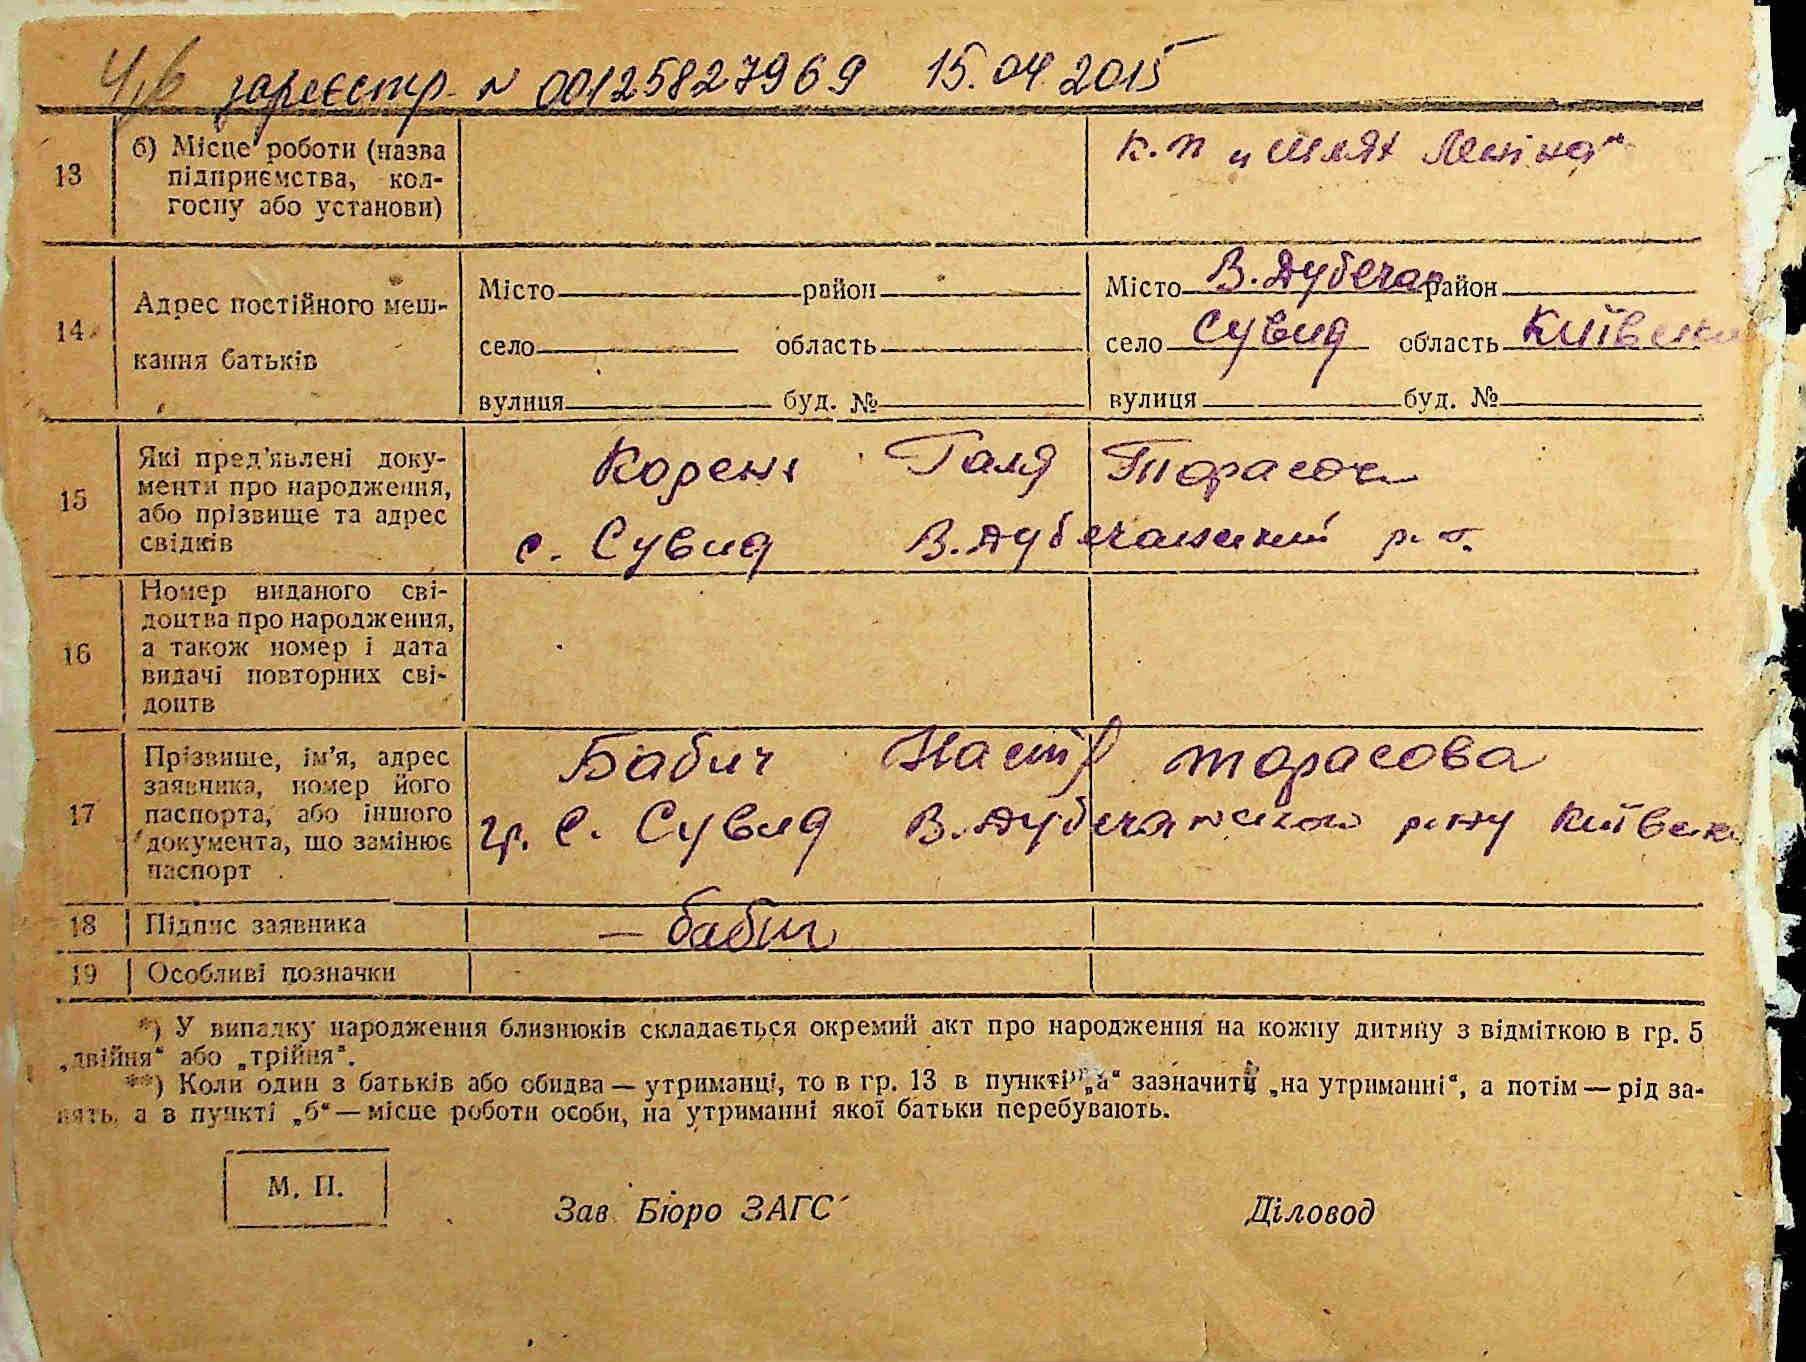 зареєстр. N 00125827969 15.04.2015
13
б) Місце роботи (назва
підприємства, кол-
госпу або установи)
к.п „Шлях Леніна"
14
Адрес постійного меш-
кання батьків
Місто район
село область
вулиця буд. №
Місто В. Дубечан район
село Сувид область Київськ
вулиця буд. №
15
Які пред'явлені доку-
менти про народження,
або прізвище та адрес
свідків
Корень Галя
с. Сувид В. Дубечанський р.
16
Номер виданого сві-
доцтва про народження,
а також номер і дата
видачі повторних сві-
доцтв
17
Прізвище, ім'я, адрес
заявника, номер його
паспорта, або іншого
документа, що замінює
паспорт
Бабич Настя Тарасова
гр. с. Сувид В. Дубечанского р-ну Київськ
18
Підпис заявника
– Бабич
19
Особливі позначки
*) У випадку народження близнюків складається окремий акт про народження на кожну дитину з відміткою в гр. 5
„двійня“ або „трійня“.
**) Коли один з батьків або обидва — утриманці, то в гр. 13 в пункті „а“ зазначити „на утриманні“, а потім — рід за-
нять, а в пункті „б“ — місце роботи особи, на утриманні якої батьки перебувають.
М. П.
Зав. Бюро ЗАГС
Діловод